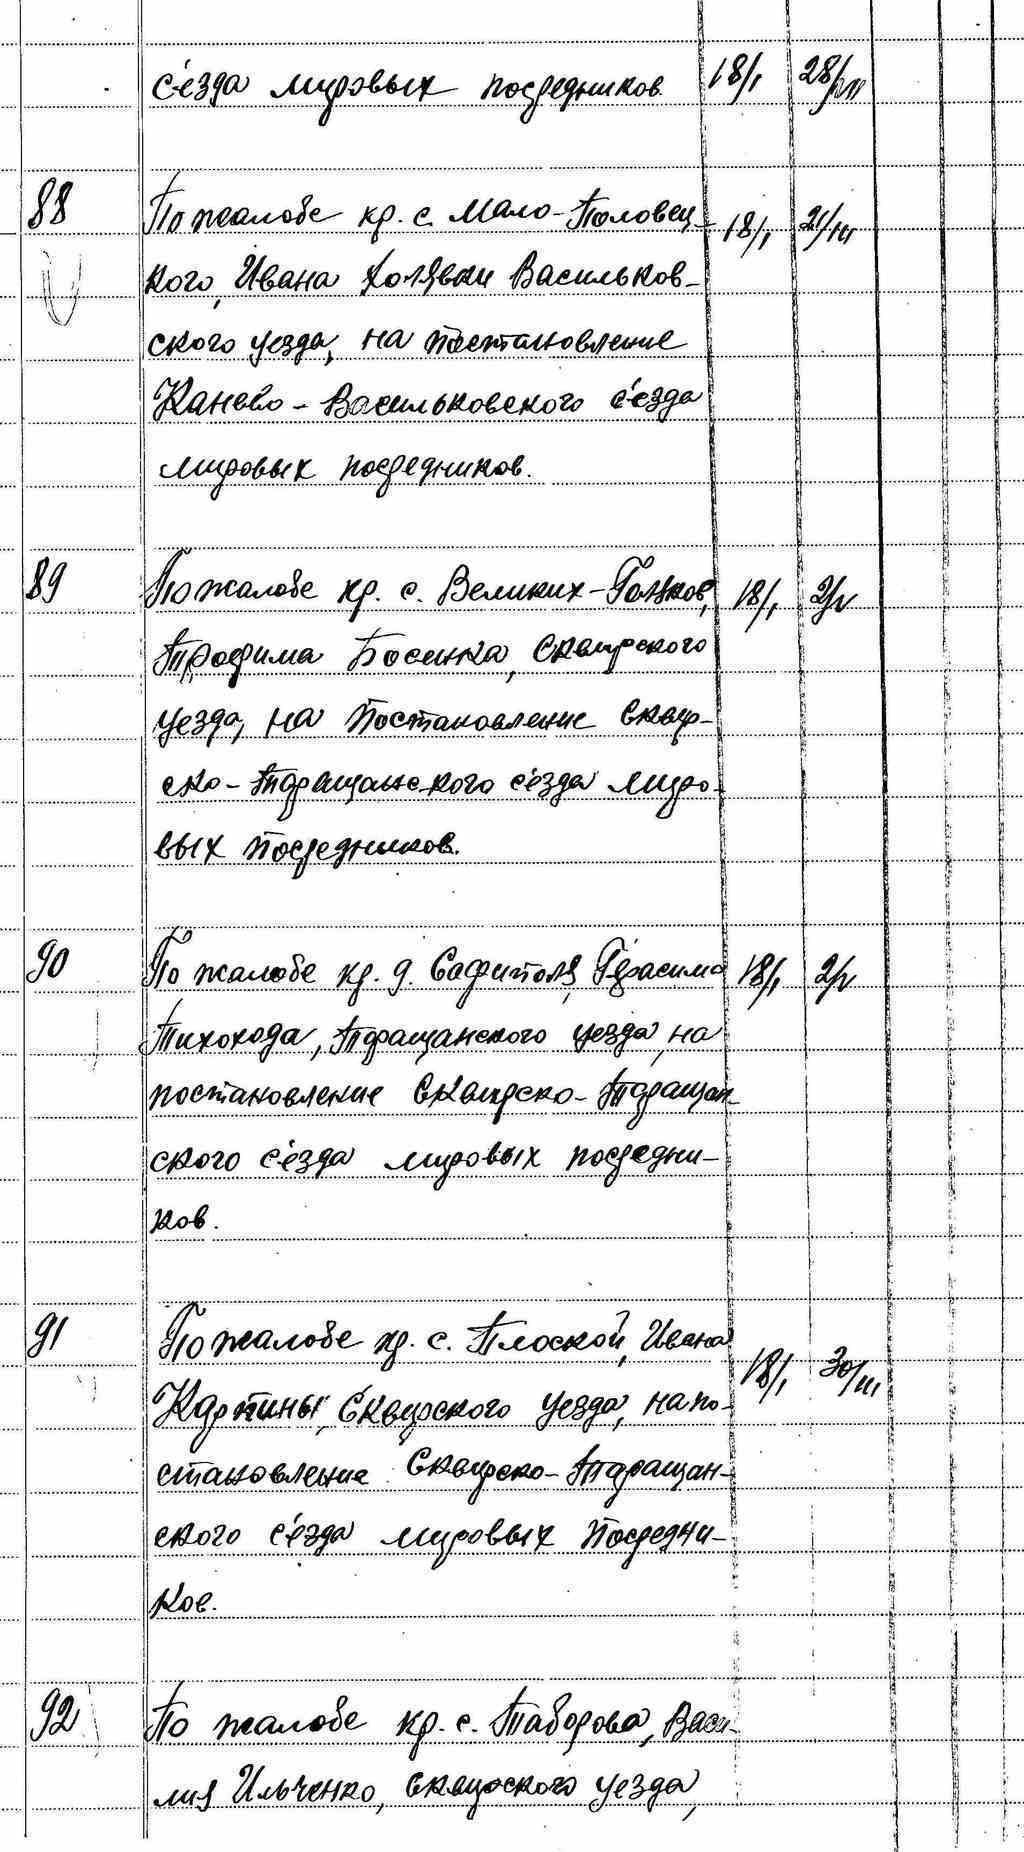 с'езда мировых посредников. 18/I 28/VIII
88 По жалобе кр. с. Мало-Половец- 18/I 21/III
кого, Ивана Холявки Васильков-
ского уезда, на постановление
Канево-Васильковского с'езда
мировых посредников.
89 По жалобе кр. с. Великих-Гольков, 18/I 2/V
Трофима Босенка, Сквирского
уезда, на постановление Сквир-
ско-Таращанского с'езда миро-
вых посредников.
90 По жалобе кр. д. Сафиполя, Герасима 18/I 2/V
Тихохода, Таращанского уезда, на
постановление Сквирско-Таращан-
ского с'езда мировых посредни-
ков.
91 По жалобе кр. с. Плоской, Ивана
Картины, Сквирского уезда, на по- 18/I 30/III
становление Сквирско-Таращан-
ского с'езда мировых посредни-
ков.
92 По жалобе кр. с. Таборова, Васи-
лия Ильченко, Сквирского уезда,